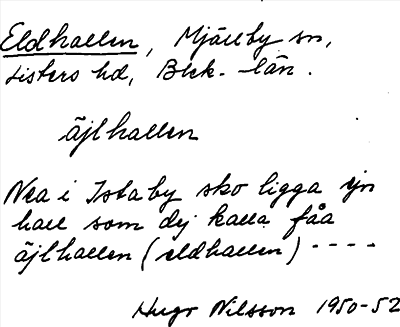 Eldhallen, Mjällby sn,
Listers hd, Blek. län.
äjlhallen
Nea i Istaby sko ligga ijn
hall som dij kalla fåa
äjlhallen (eldhallen) ----
Hugo Nilsson 1950-52